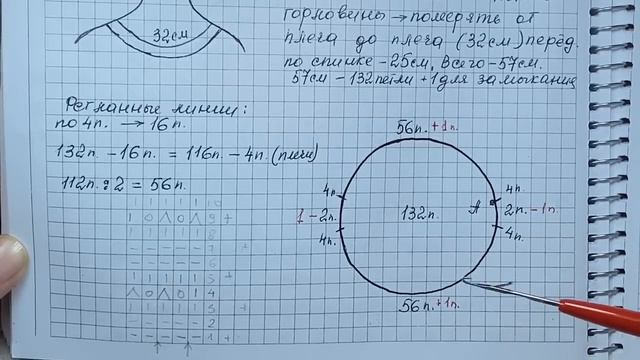 32см
горловины → померять от
плеча до плеча (32см) перёд.
по спинке - 25см, Всего - 57см.
57см - 132петли + 1 для замыкания
Регланные линии:
по 4п. → 16п.
132п. - 16п. = 116п. - 4п. (плечи)
112п. : 2 = 56п.
56п. + 1п.
4п.
1 - 2п.
4п.
132п.
А
4п.
2п. - 1п.
4п.
56п. + 1п.
| | | | | 10
1 0 ∧ 0 ∧ 9 +
| | | | | 8
- - - - - 7 +
- - - - - 6
| | | | | 5 +
∧ 0 ∧ 0 1 4
| | | | | 3 +
- - - - - 2
- - - - - 1 +